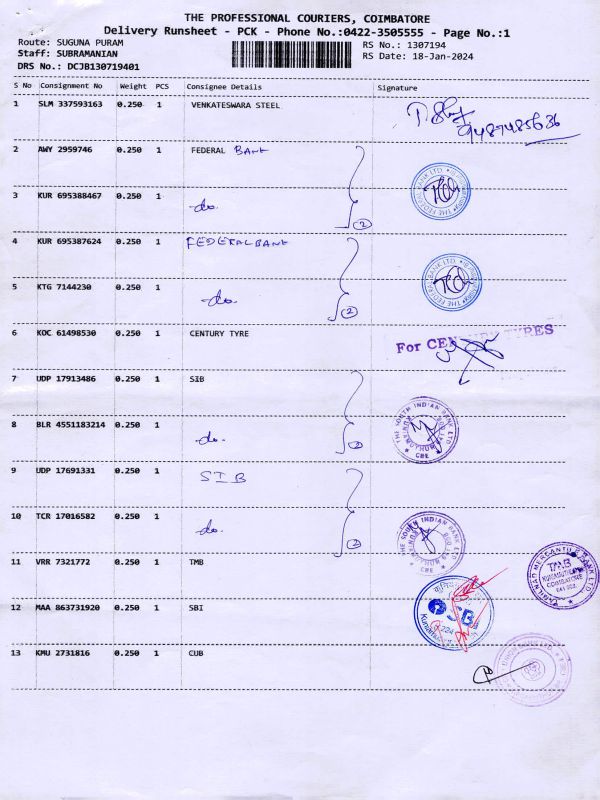 THE PROFESSIONAL COURIERS, COIMBATORE
Delivery Runsheet - PCK - Phone No.:0422-3505555 - Page No.:1
Route: SUGUNA PURAM
Staff: SUBRAMANIAN
DRS No.: DCJB130719401
RS No.: 1307194
RS Date: 18-Jan-2024
S No Consignment No Weight PCS Consignee Details Signature
1 SLM 337593163 0.250 1 VENKATESWARA STEEL
9487485636
2 AWY 2959746 0.250 1 FEDERAL BANK
3 KUR 695388467 0.250 1 -do. 2
4 KUR 695387624 0.250 1 FEDERAL BANK
5 KTG 7144230 0.250 1 -do. 2
6 KOC 61498530 0.250 1 CENTURY TYRE
For CENTURY TYRES
7 UDP 17913486 0.250 1 SIB
8 BLR 4551183214 0.250 1 -do. 2
THE SOUTH INDIAN BANK LTD
CBE
9 UDP 17691331 0.250 1 SIB
10 TCR 17016582 0.250 1 do. 2
THE SOUTH INDIAN BANK LTD
CBE
11 VRR 7321772 0.250 1 TMB
TAMILNAD MERCANTILE BANK LTD
TMB
COIMBATORE
12 MAA 863731920 0.250 1 SBI
13 KMU 2731816 0.250 1 CUB